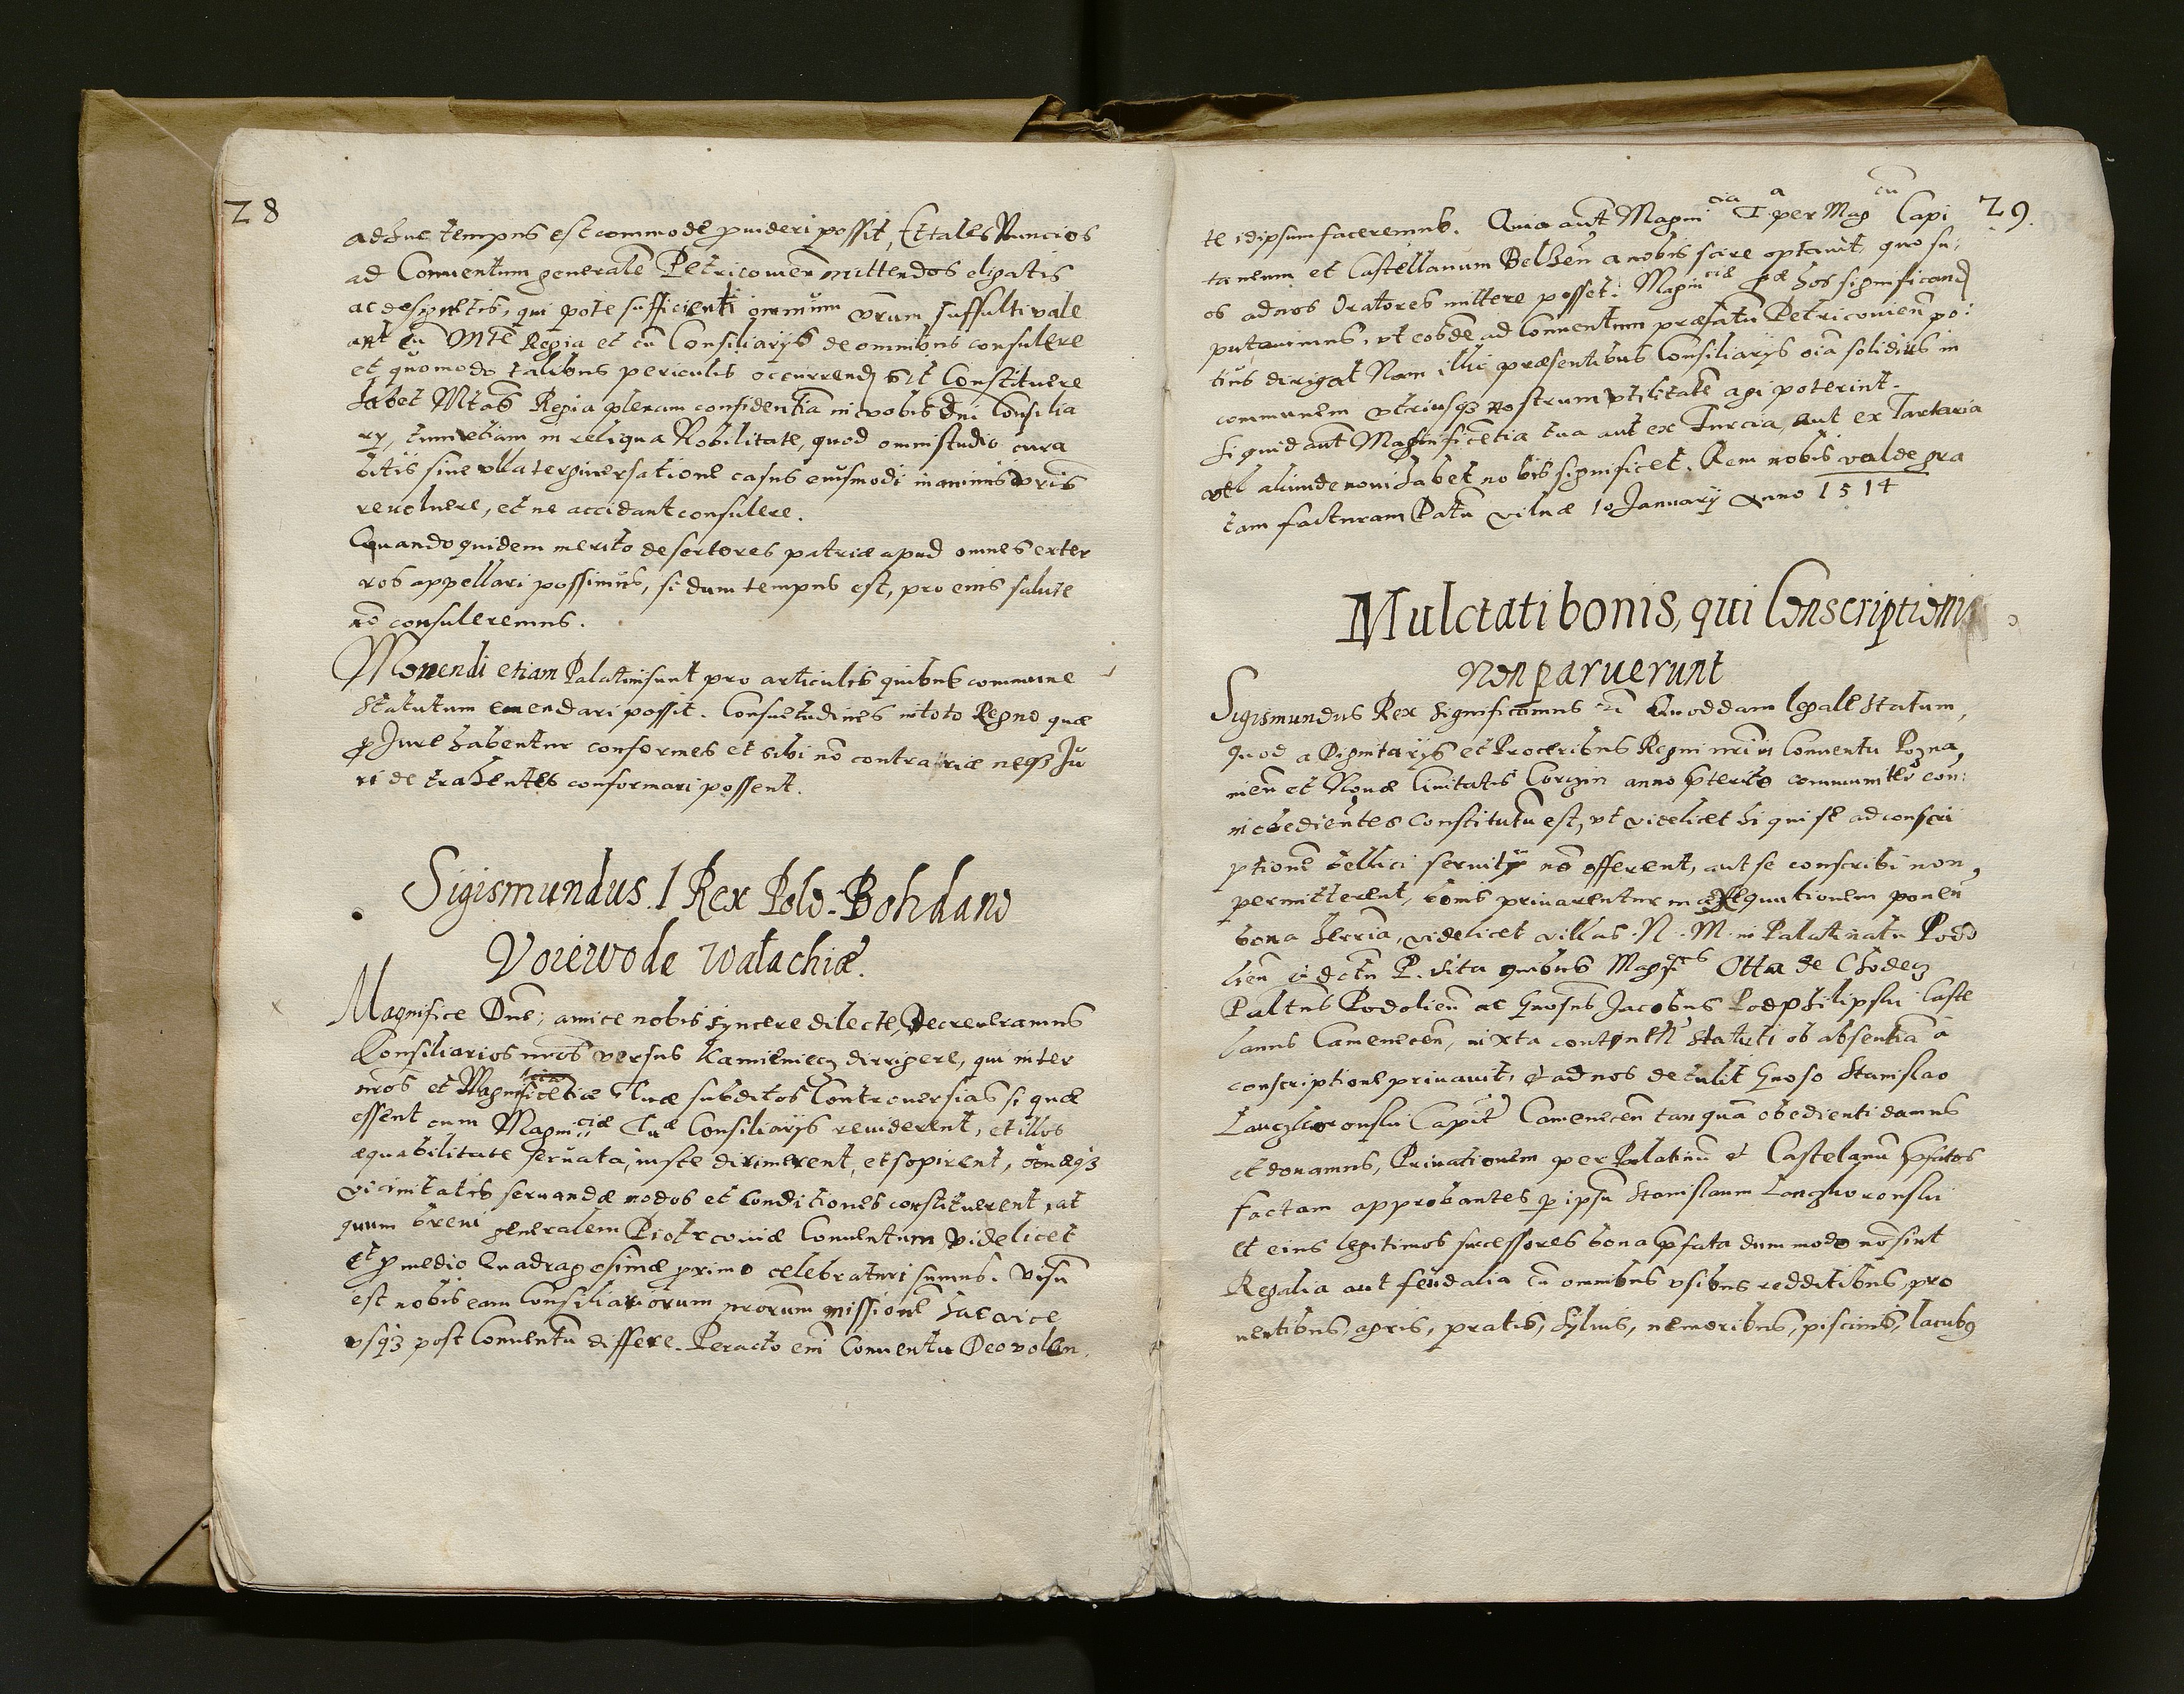 28
adhuc tempus est commode puideri possit, Et tales Nuncios
ad Conuentum generale Petricouien mittendos eligatis
ac designetis, qui pote sufficienti omnium vrum suffulti vale
ant cu Mte Regia et cu Consiliarijs de omnibus consulere
et quomodo talibus periculis occurrend sit Constituere
habet Mtas Regia plenam confidentia in vobis dni Consilia
rij, tum etiam in reliqua Nobilitate, quod omni studio cura
bitis sine vlla tergiuersatione casus eiusmodi in animis vris
reuoluere, et ne accidant consulere.
Quandoquidem merito desertores patriæ apud omnes exter
ros appellari possimus, si dum tempus est, pro eius salute
no consuleremus.
Monendi etiam Palatini sunt pro articulis quibus commune
Statutum emendari possit. Consuetudines in toto Regno quæ
p Jure habentur conformes et sibi no contrariæ neqz Ju
ri detrahentes conformari possent.
Sigismundus. 1 Rex Polo. Bohdano
Voiewodæ Walachiæ.
Magnifice Dne; amice nobis syncere dilecte, Decreueramus
Consiliarios nros versus Kamieniecz dirrigere, qui inter
nros et Magnificetiæ Tuæ subditos Controuersias si quæ
essent cum Magniciæ Tuæ Consiliarijs reuiderent, et illos
æquabilitate seruata, iuste dirimerent, et sopirent, bonæqz
vicinitatis seruandæ modos et Conditiones constituerent, at
quum breui generalem Piotrcouiæ Conuentum videlicet
et p medio Quadragesimæ primo celebraturi sumus. Visu
est nobis eam Consiliariorum nrorum missione hac vice
vsqz post Conuentu differe. Peracto eni Conuentu Deo volen.
29.
te idipsum faceremus. Quia aut Magnicia Ta per Magcu Capi
taneum et Castellanum Belzen a nobis scire optauit, quo su,
os ad nos Oratores mittere posset. Magniciæ hos significand
putauimus, vt eosde ad Conuentum præfatu Petricouien po:
tius dirigat Nam illic præsentibus Consiliarijs oia solidius in
communem vtriusqz nostrum vtilitate agi poterint.
Si quid aut Magnificetia tua aut ex Turcia, aut ex Tartaria
vel aliunde noui habet nobis significet. Rem nobis valde gra
tam facturam Datu Vilnæ 10 January Anno 1514
Mulctati bonis, qui Conscriptionis
non paruerunt
Sigismundus Rex Significamus Quoddam legale Statum,
quod a Dignitarijs et Proceribus Regni nri in Conuentu Pozna,
nien et Nouæ Ciuitatis Corzin anno pterito communiter con:
inobedientes Constitutu est, vt videlicet hi qui se ad conscri
ptione bellici seruitij no offerent, aut se conscribi non,
permitterent, bonis priuarentur in exequutionem ponen
bona terria, videlicet villas. N. M. in Palatinatu Podo
lien dictu P. sita quibus Magficus Otta de Chodecz
Paltnus Podolien ac Gnosus Jacobus Podphilipski Caste
lanus Camenecen, iuxta contineti Statuti ob absentia a
conscriptione priuauit, & ad nos detulit Gnoso Stanislao
Lanczkoronski Capit Camenecen tanqua obedienti damus
et donamus, Priuationem per Palatinu et Castelanu pfatos
factam approbantes p ipsu Stanislaum Lanczkoronski
et eius legitimos successores bona pfata dummodo no sint
Regalia aut feudalia cu omnibus vsibus redditibus, pro
uentibus, agris, pratis, Syluis, nemoribus, piscinis, lacubq